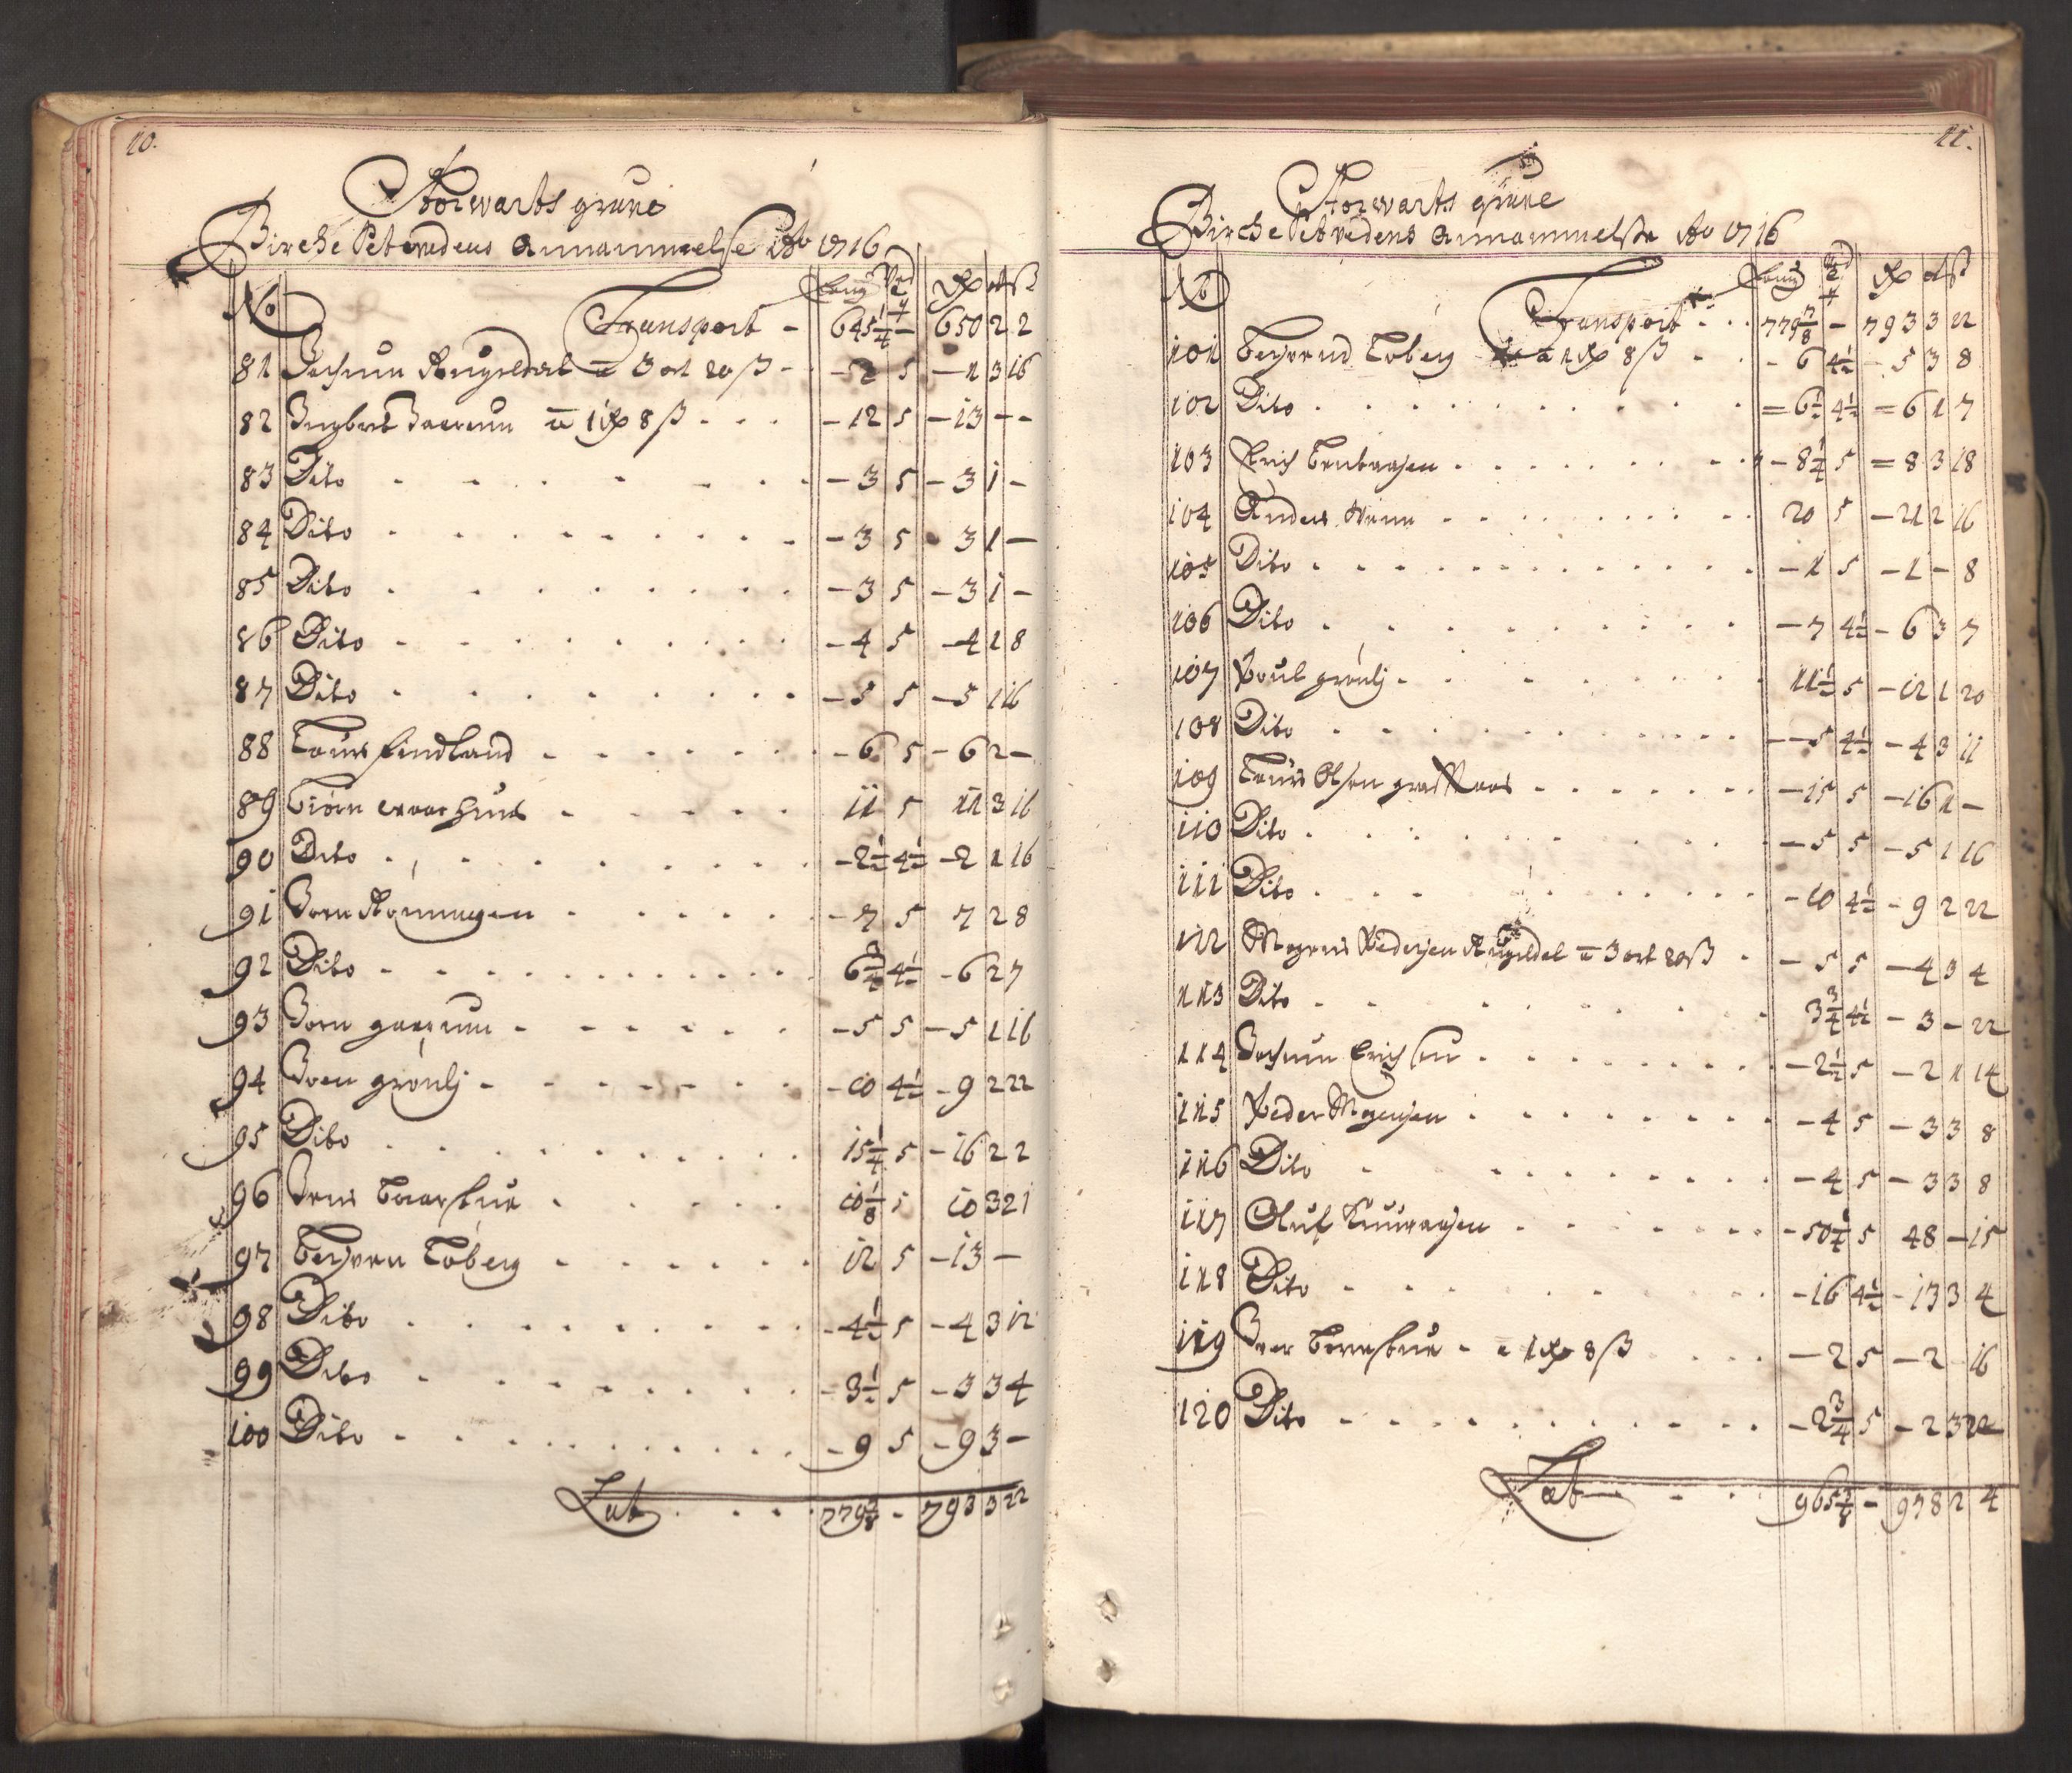 10.
Storwarts grube
Birche Setwedens Annammelse Ao 1716
No Transport - 645 1/4 - 650 2 2
81 Jochum Rugeldal a 3 ort 20 ß - 2 5 - 1 3 16
82 Ingbret a 1 Rdr 8 ß - 12 5 - 13 - -
83 Dito - 3 5 - 3 1 -
84 Dito - 3 5 - 3 1 -
85 Dito - 3 5 - 3 1 -
86 Dito - 4 5 - 4 1 8
87 Dito - 5 5 - 5 1 16
88 Lars Findland - 6 5 - 6 2 -
89 Biørn 11 5 11 3 16
90 Dito - 2 1/2 4 1/2 - 2 1 16
91 Joen Rønningen - 7 5 7 2 8
92 Dito 6 3/4 4 1/2 - 6 2 7
93 Joen - 5 5 - 5 1 16
94 Joen grønli - 10 4 1/2 - 9 2 22
95 Dito 15 1/4 5 - 16 2 2
96 Jens 10 1/8 5 10 3 21
97 Toberg 12 5 - 13 -
98 Dito - 4 1/2 5 - 4 3 12
99 Dito - 3 1/2 5 - 3 3 4
100 Dito - 9 5 - 9 3 -
Lat 779 7/8 - 793 3 22
11.
Storwarts grube
Birche Setvedens Annammelse Ao 1716
No Transport 779 7/8 - 793 3 22
101 Toberg a 1 Rdr 8 ß - 6 4 1/2 - 5 3 8
102 Dito = 6 1/2 4 1/2 = 6 1 7
103 Erich - 8 1/4 5 = 8 3 18
104 Anders 20 5 - 21 2 16
105 Dito - 1 5 - 1 - 8
106 Dito - 7 4 1/2 - 6 3 7
107 Poul grønli 11 1/2 5 - 12 1 20
108 Dito - 5 4 1/2 - 4 3 11
109 Lars Olsen - 15 5 - 16 1 -
110 Dito - 5 5 - 5 1 16
111 Dito - 10 4 1/2 - 9 2 22
112 Mogens Pedersen Rugeldal a 3 ort 20 ß - 5 5 - 4 3 4
113 Dito 3 3/4 4 1/2 - 3 - 22
114 Jochum Erichsen - 2 1/2 5 - 2 1 14
115 Peder Mogensen - 4 5 - 3 3 8
116 Dito - 4 5 - 3 3 8
117 Oluf - 50 1/4 5 48 - 15
118 Dito - 16 4 1/2 - 13 3 4
119 Iver a 1 Rdr 8 ß - 2 5 - 2 16
120 Dito - 2 3/4 5 - 2 3 22
Lat 965 7/8 - 978 2 4